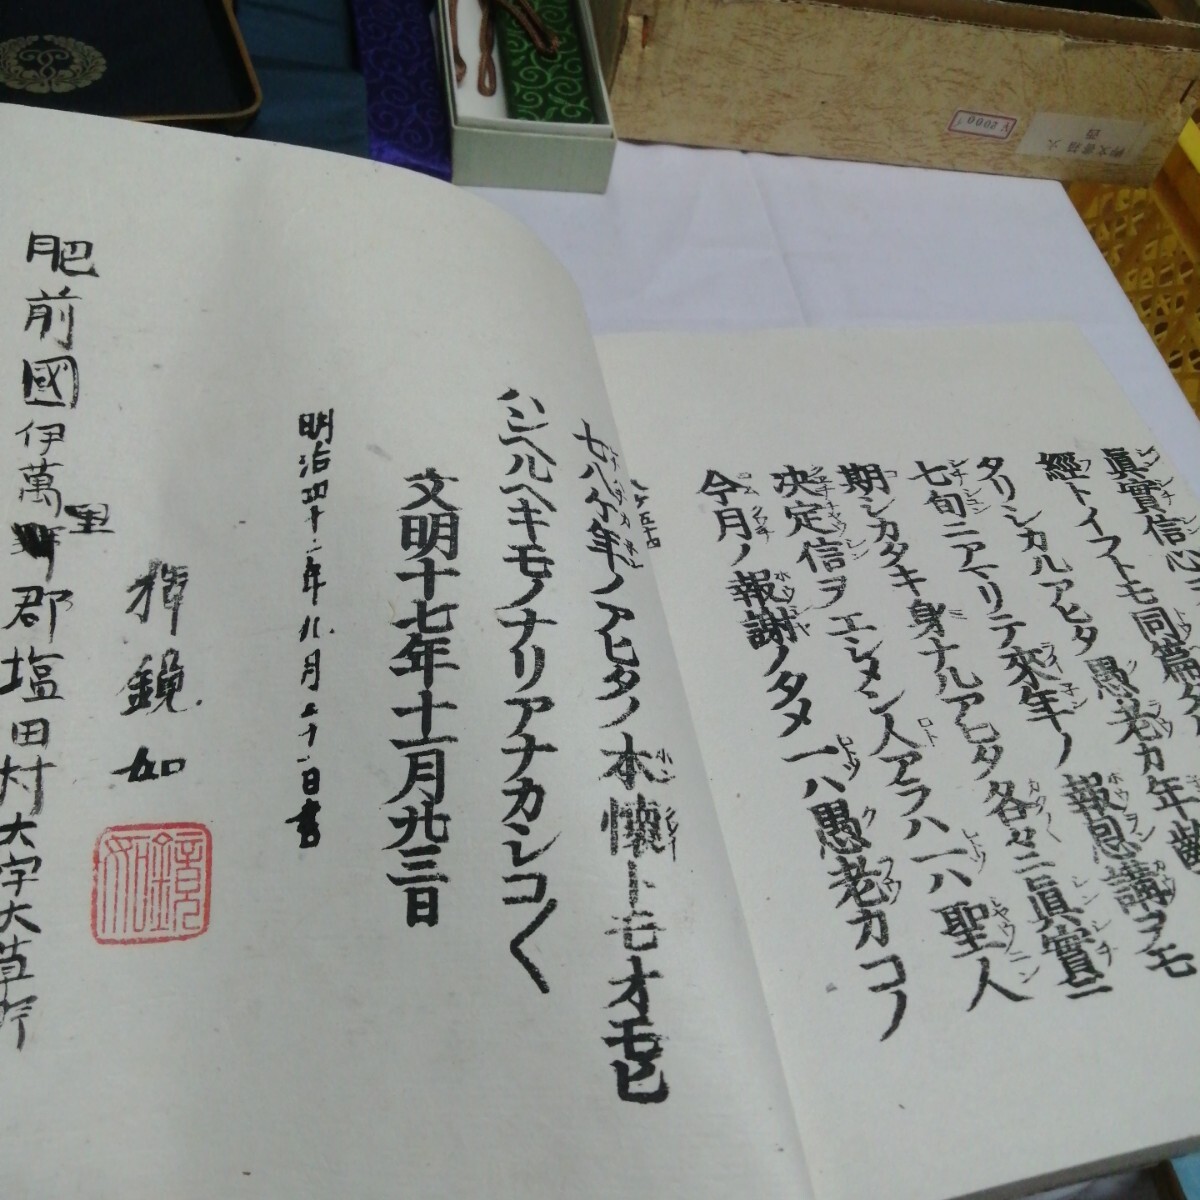 眞實信心
經トイフトモ同篇タ
タリシカルアヒタ愚老カ年齢
七旬ニアマリテ來年ノ報恩講ヲモ
期シカタキ身ナルアヒタ各々ニ眞實ニ
決定信ヲエシメン人アラハ一ハ聖人
今月ノ報謝ノタメ一ハ愚老カコノ
七八ケ年ノアヒタノ本懷トモオモヒ
ハンヘルヘキモノナリアナカシコ〱
文明十七年十一月廿三日
日書
鏡如
鏡如
肥前國伊萬里郡塩田村大字大草野
¥2000